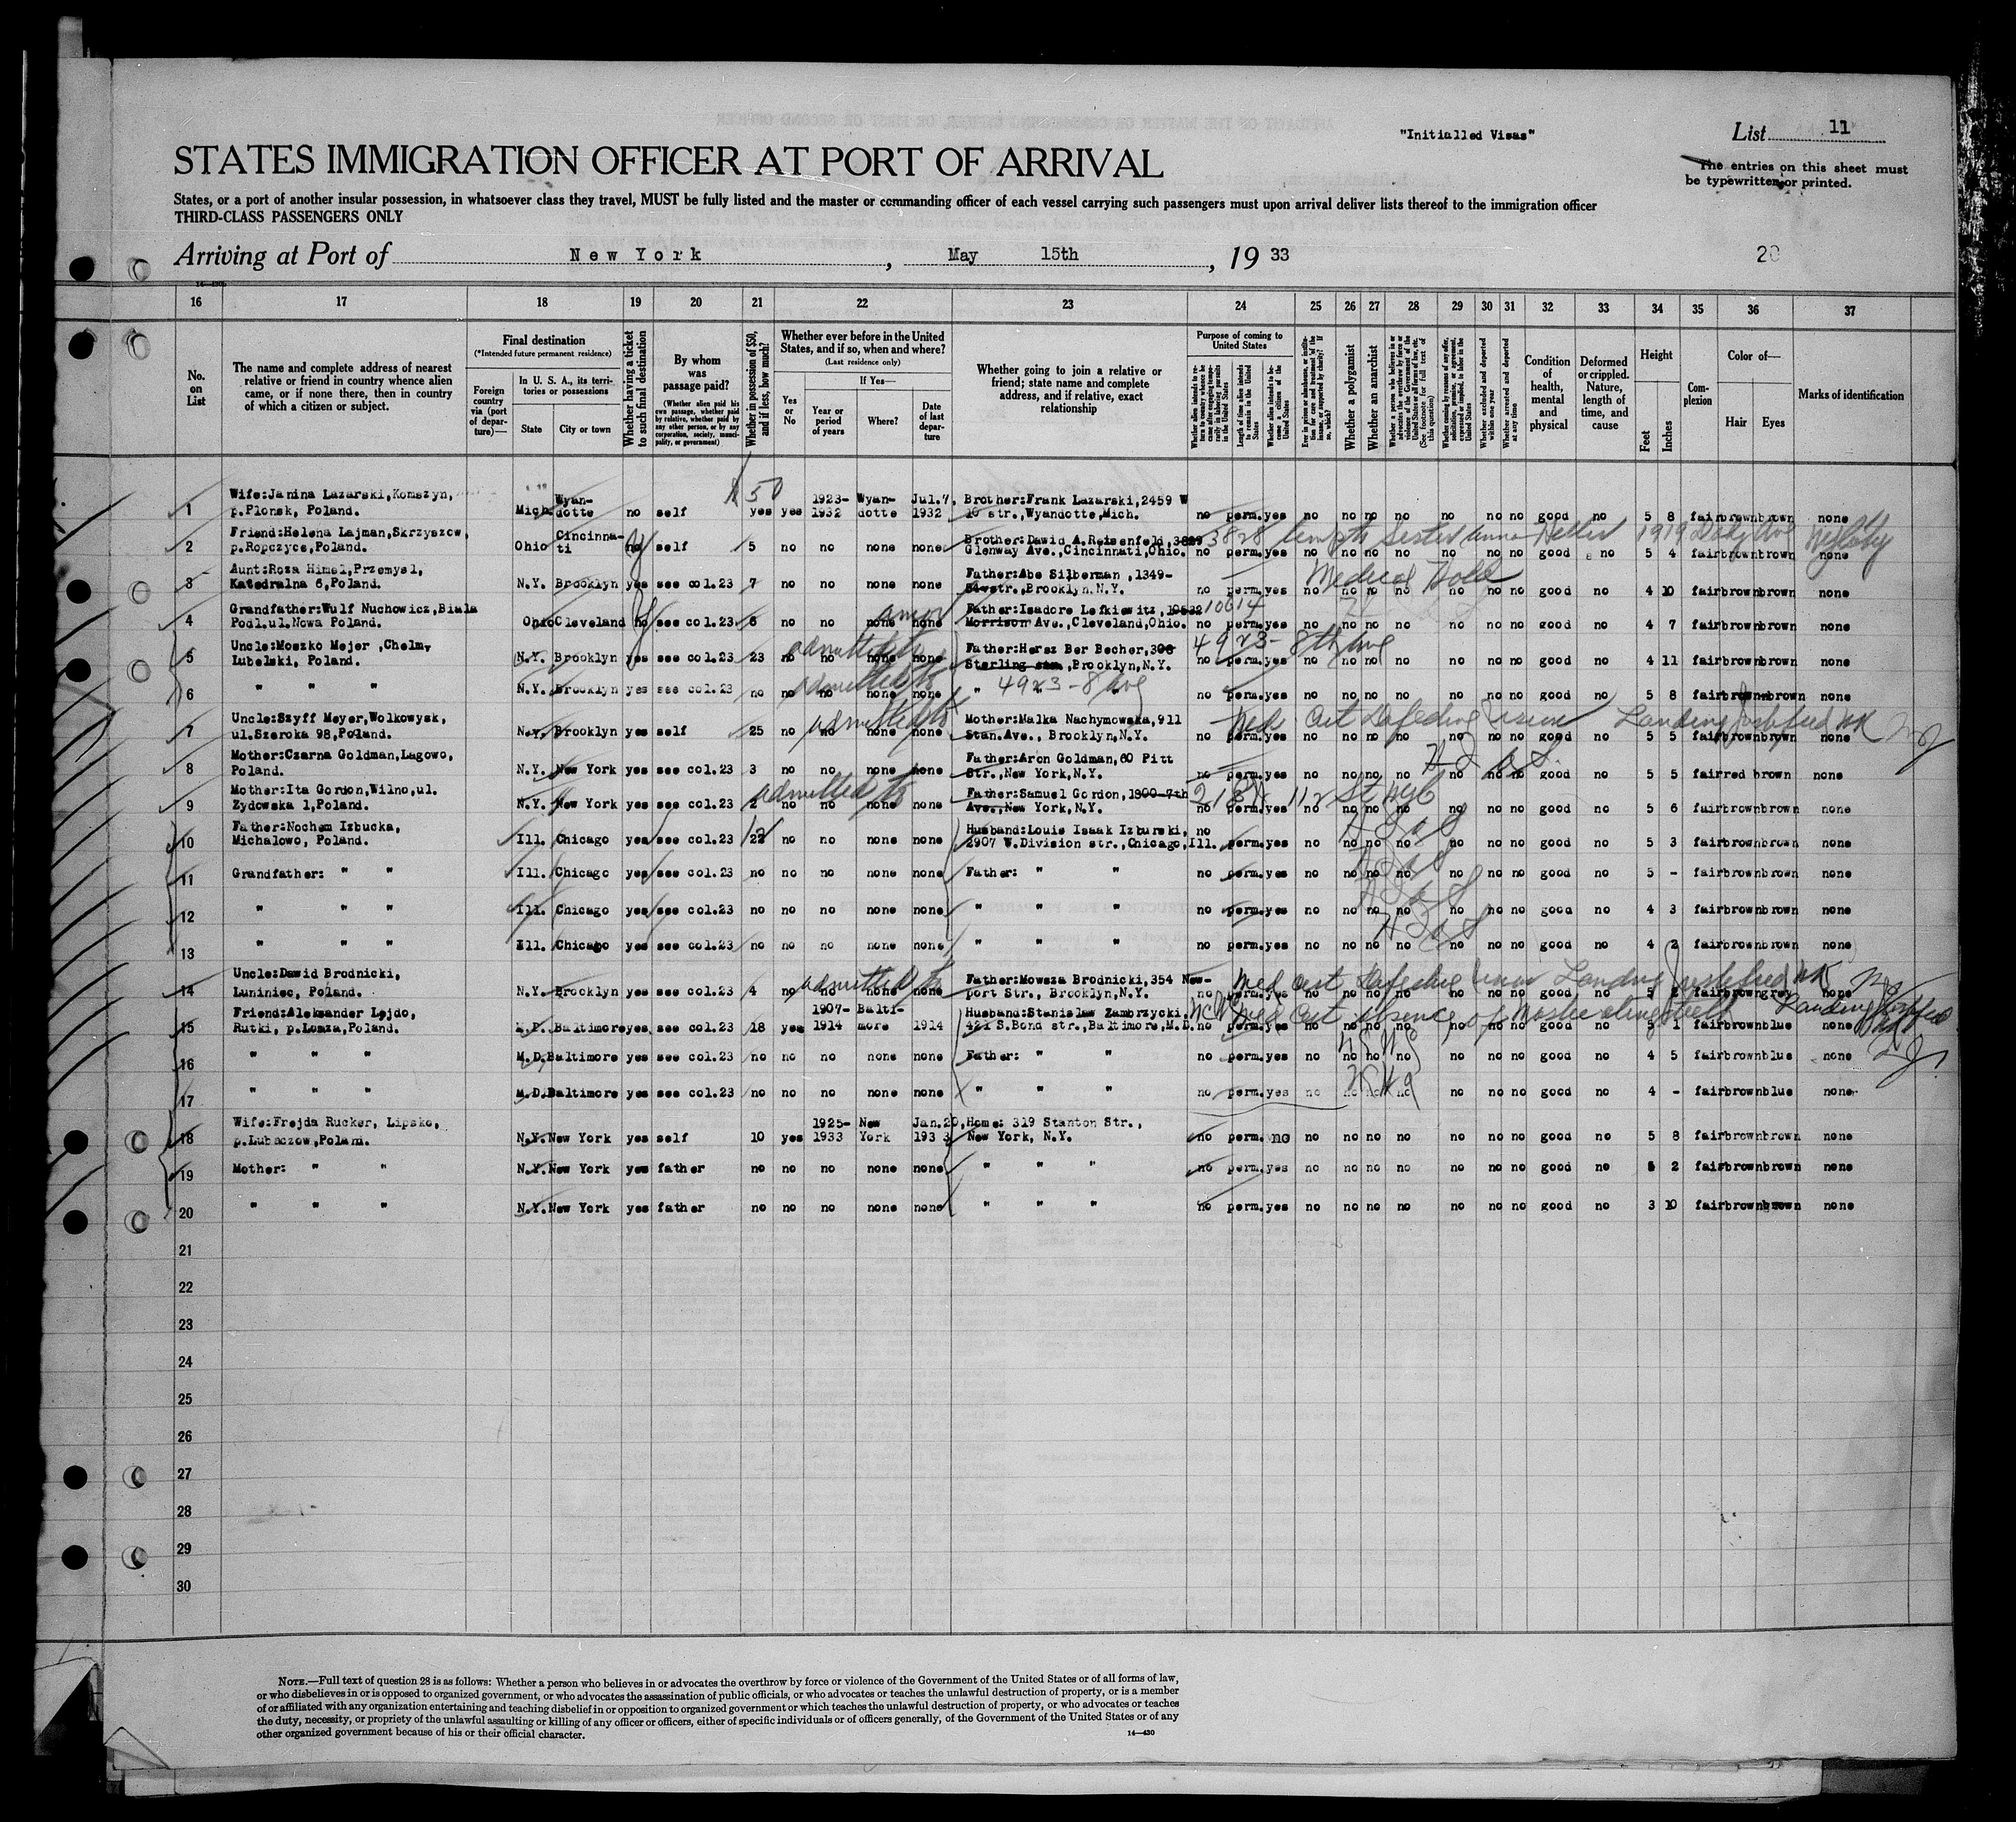 "Initialled Visas"
List 11
STATES IMMIGRATION OFFICER AT PORT OF ARRIVAL
The entries on this sheet must
be typewritten or printed.
States, or a port of another insular possession, in whatsoever class they travel, MUST be fully listed and the master or commanding officer of each vessel carrying such passengers must upon arrival deliver lists thereof to the immigration officer
THIRD-CLASS PASSENGERS ONLY
Arriving at Port of New York, May 15th, 19 33
20
16 17 18 19 20 21 22 23 24 25 26 27 28 29 30 31 32 33 34 35 36 37
No. on List
The name and complete address of nearest relative or friend in country whence alien came, or if none there, then in country of which a citizen or subject.
Final destination
(*Intended future permanent residence)
Foreign country via (port of departure)—
In U. S. A., its territories or possessions
State
City or town
Whether having a ticket to such final destination
By whom was passage paid?
(Whether alien paid his own passage, whether paid by relative, whether paid by any other person, or by any corporation, society, municipality, or government)
Whether in possession of $50, and if less, how much?
Whether ever before in the United States, and if so, when and where?
(Last residence only)
Yes or No
If Yes—
Year or period of years
Where?
Date of last departure
Whether going to join a relative or friend; state name and complete address, and if relative, exact relationship
Purpose of coming to United States
Length of time alien intends to remain in the United States
Whether alien intends to become a citizen of the United States
Whether a polygamist
Whether an anarchist
Whether excluded and deported within one year
Whether arrested and deported at any time
Condition of health, mental and physical
Deformed or crippled. Nature, length of time, and cause
Height
Feet
Inches
Complexion
Color of—
Hair
Eyes
Marks of identification
$50
1 Wife:Janina Lazarski,Komszyn, p.Plonsk, Poland. Mich. Wyandotte no self yes yes 1923-1932 Wyandotte Jul.7, 1932 Brother:Frank Lazarski,2459 W 10 str.,Wyandotte,Mich. no perm. yes no no no no no no no good no 5 8 fair brown brown none
2 Friend:Helena Lajman,Skrzyszow, p.Ropczyce,Poland. Ohio Cincinnati no self 5 no no none none Brother:David A.Reisenfeld, Glenway Ave.,Cincinnati,Ohio. 3828 Sister Anna no perm. yes no no no no no no no good no 5 4 fair brown brown none
3 Aunt:Roza Himel,Przemysl, Katedralna 6,Poland. N.Y. Brooklyn yes see col.23 7 no no none none Father:Abe Silberman ,1349- str.,Brooklyn.N.Y. Medical Hold no perm. yes no no no no no no no good no 4 10 fair brown brown none
4 Grandfather:Wulf Nuchowicz,Biala Podl.ul.Nowa Poland. Ohio Cleveland no see col.23 6 no no none none Father:Isadore Lefkiewitz, 10614 Morrison Ave.,Cleveland,Ohio. no perm. yes no no no no no no no good no 4 7 fair brown brown none
5 Uncle:Moszko Mejer ,Chelm, Lubelski, Poland. N.Y. Brooklyn yes see col.23 23 no no none none admitted to Father:Hersz Ber Becher,306 Sterling ,Brooklyn,N.Y. 4923-8th Ave no perm. yes no no no no no no no good no 4 11 fair brown brown none
6 " " " N.Y. Brooklyn yes see col.23 no no no none none admitted to " 4923-8 Ave no perm. yes no no no no no no no good no 5 8 fair brown brown none
7 Uncle:Szyff Meyer,Wolkowysk, ul.Szeroka 98,Poland. N.Y. Brooklyn yes self 25 no no none none admitted to Mother:Malka Nachymowska,911 Stan.Ave., Brooklyn,N.Y. Med. Cert Defective vision Landing justified no perm. yes no no no no no no no good no 5 5 fair brown brown none
8 Mother:Czarna Goldman,Lagowo, Poland. N.Y. New York yes see col.23 3 no no none none Father:Aron Goldman,60 Pitt Str.,New York,N.Y. no perm. yes no no no no no no no good no 5 5 fair red brown none
9 Mother:Ita Gordon,Wilno,ul. Zydowska 1,Poland. N.Y. New York yes see col.23 2 no no none none admitted to Father:Samuel Gordon,1800-7th Ave,New York,N.Y. no perm. yes no no no no no no no good no 5 6 fair brown brown none
10 Father:Nochem Izbucka, Michalowo, Poland. Ill. Chicago yes see col.23 22 no no none none Husband:Louis Isaak Izburski, 2907 W.Division str.,Chicago,Ill. no perm. yes no no no no no no no good no 5 3 fair brown brown none
11 Grandfather: " " Ill. Chicago yes see col.23 no no no none none Father: " " no perm. yes no no no no no no no good no 5 - fair brown brown none
12 " " " Ill. Chicago yes see col.23 no no no none none " " " no perm. yes no no no no no no no good no 4 3 fair brown brown none
13 " " " Ill. Chicago yes see col.23 no no no none none " " " no perm. yes no no no no no no no good no 4 2 fair brown brown none
14 Uncle:Dawid Brodnicki, Luniniec, Poland. N.Y. Brooklyn yes see col.23 4 no no none none admitted to Father:Mowsza Brodnicki,354 Newport Str., Brooklyn,N.Y. Med Cert Defective vision Landing justified no perm. yes no no no no no no no good no 5 2 fair brown grey none
15 Friend:Aleksander Lojdo, Rutki, p.Lomza,Poland. Baltimore yes, see col.23 18 yes 1907-1914 Baltimore 1914 Husband:Stanislaw Zambrzycki, 421 S.Bond str.,Baltimore,M.D. Med Cert absence of masticating teeth Landing justified no perm. yes no no no no no no no good no 5 1 fair brown blue none
16 " " " M.D. Baltimore yes see col.23 no no no none none Father: " " no perm. yes no no no no no no no good no 4 5 fair brown blue none
17 " " " M.D. Baltimore yes see col.23 no no no none none " " no perm. yes no no no no no no no good no 4 - fair brown blue none
18 Wife:Frejda Rucker, Lipsko, p.Lubaczow,Poland. N.Y. New York yes self 10 yes 1925-1933 New York Jan.20, 1933 Home: 319 Stanton Str., New York, N.Y. no perm. no no no no no no no no good no 5 8 fair brown brown none
19 Mother: " " N.Y. New York yes father no no no none none " " " no perm. yes no no no no no no no good no 2 fair brown brown none
20 " " " N.Y. New York yes father no no no none none " " " no perm. yes no no no no no no no good no 3 10 fair brown brown none
21
22
23
24
25
26
27
28
29
30
NOTE.—Full text of question 28 is as follows: Whether a person who believes in or advocates the overthrow by force or violence of the Government of the United States or of all forms of law,
or who disbelieves in or is opposed to organized government, or who advocates the assassination of public officials, or who advocates or teaches the unlawful destruction of property, or is a member
of or affiliated with any organization entertaining and teaching disbelief in or opposition to organized government or which teaches the unlawful destruction of property, or who advocates or teaches
the duty, necessity, or propriety of the unlawful assaulting or killing of any officer or officers, either of specific individuals or of officers generally, of the Government of the United States or of any
other organized government because of his or their official character.
14—430